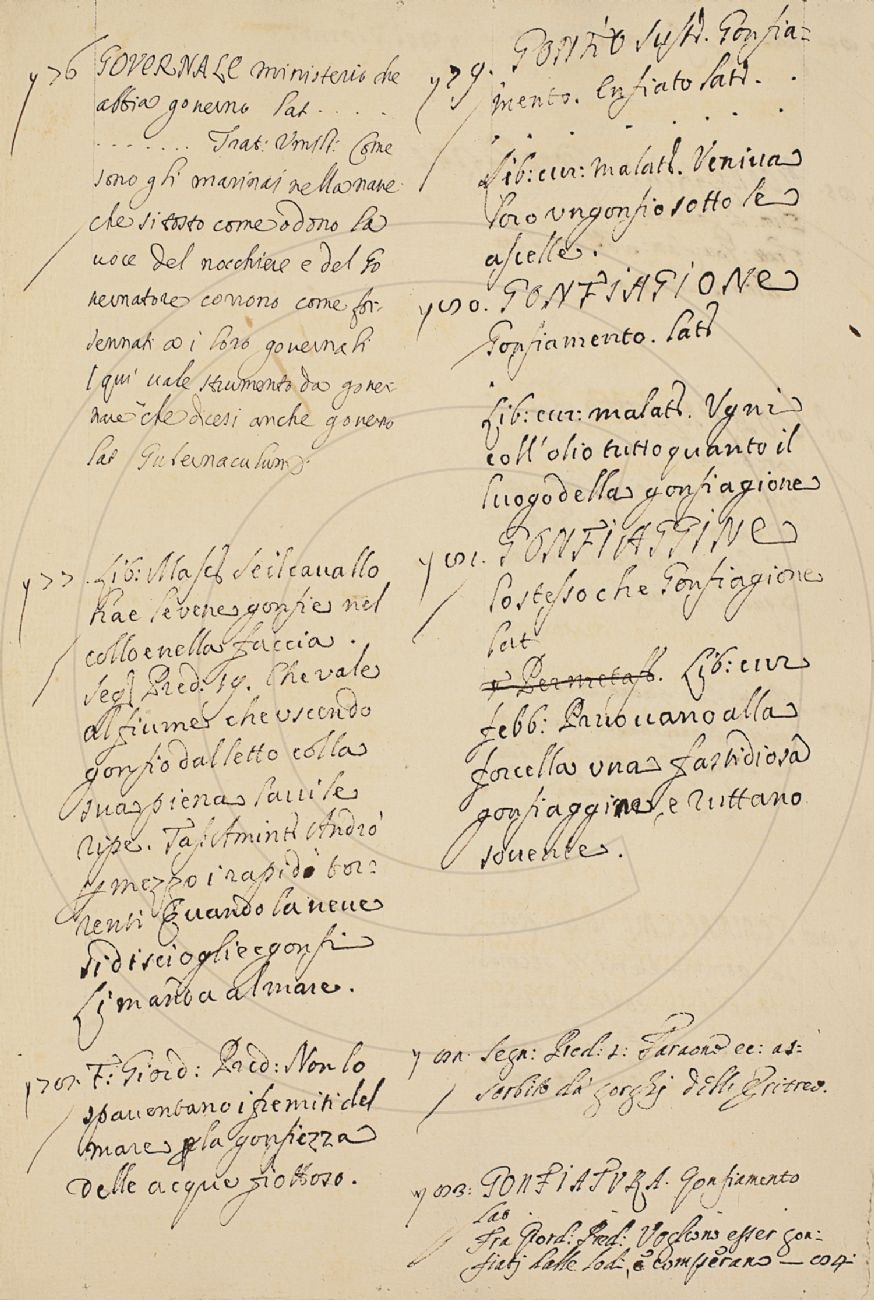 976 GOVERNALE ministerio che
abbia governo lat . . . .
. . . . . . . Trat: Umilt: Come
sono gli marinai nella nave
che si tosto come odono la
voce del nocchiere e del Go
vernatore corrono come for-
sennati a i loro governali
[qui vale strumento da gover
nave che dicesi anche governo
lat Gubernaculum.
977. Lib: Masc: Se il cavallo
hae le vene gonfie nel
collo e nella faccia.
Seg: Pred: 19. Che vale
al fiume che uscendo
gonfio dal letto colla
sua piena lavi le
ripe. Tass. Amint: Andrò
p mezzo i rapidi tor-
renti Quando la neve
si discioglie e gonfi
Li manda al mare.
978. F: Giord: Pred: Non lo
spaventano i fremiti del
mare p la gonfiezza
delle acque fiottoso.
979. GONFIO sust. Gonfia=
mento. Enfiato lat: . .
. . . . . . .
Lib: cur: malatt. Veniva
loro un gonfio sotto le
ascelle.
980. GONFIAGIONE
Gonfiamento. latt
Lib: cur: malatt. Ugni
coll' olio tutto quanto il
luogo della gonfiagione
981. GONFIAGGINE
lo stesso che Gonfiagione
lat
Lib: cur
febb: Pruovano alla
forcella una fastidiosa
gonfiaggine, e ruttano
sovente.
982. Segn: Pred: 1: Faraone ec: as=
sorbito da' gorghi dell' Eritreo.
983: GONFIATURA. Gonfiamento
Lat
Fra Giord: Pred: Vogliono esser gon=
fiati dalle lodi, e comperano — 984